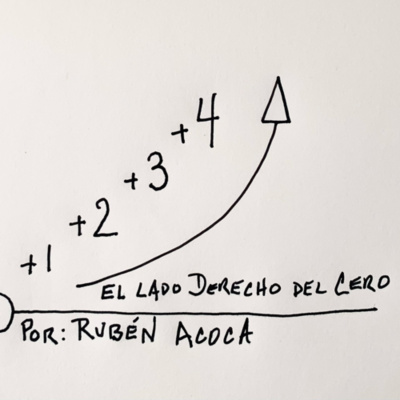 +4
+3
+2
+1
EL LADO DERECHO DEL CERO
POR: RUBÉN ACOCA